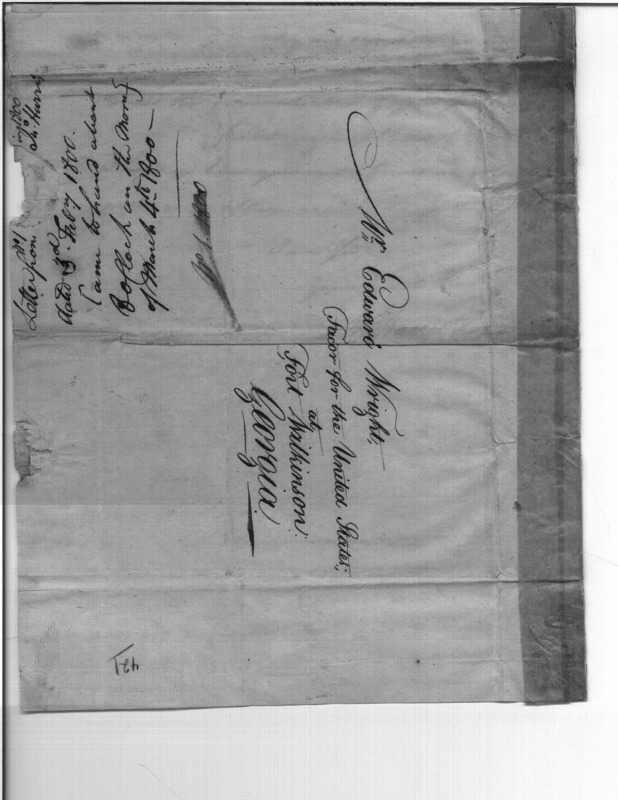 Mr. Edward Wright,
Factor for the United States,
at
Fort Wilkinson
Georgia
Letter from
dated 3d Febry 1800.
Came to hand about
8 oClock on the Morng
of March 4th 1800—
42